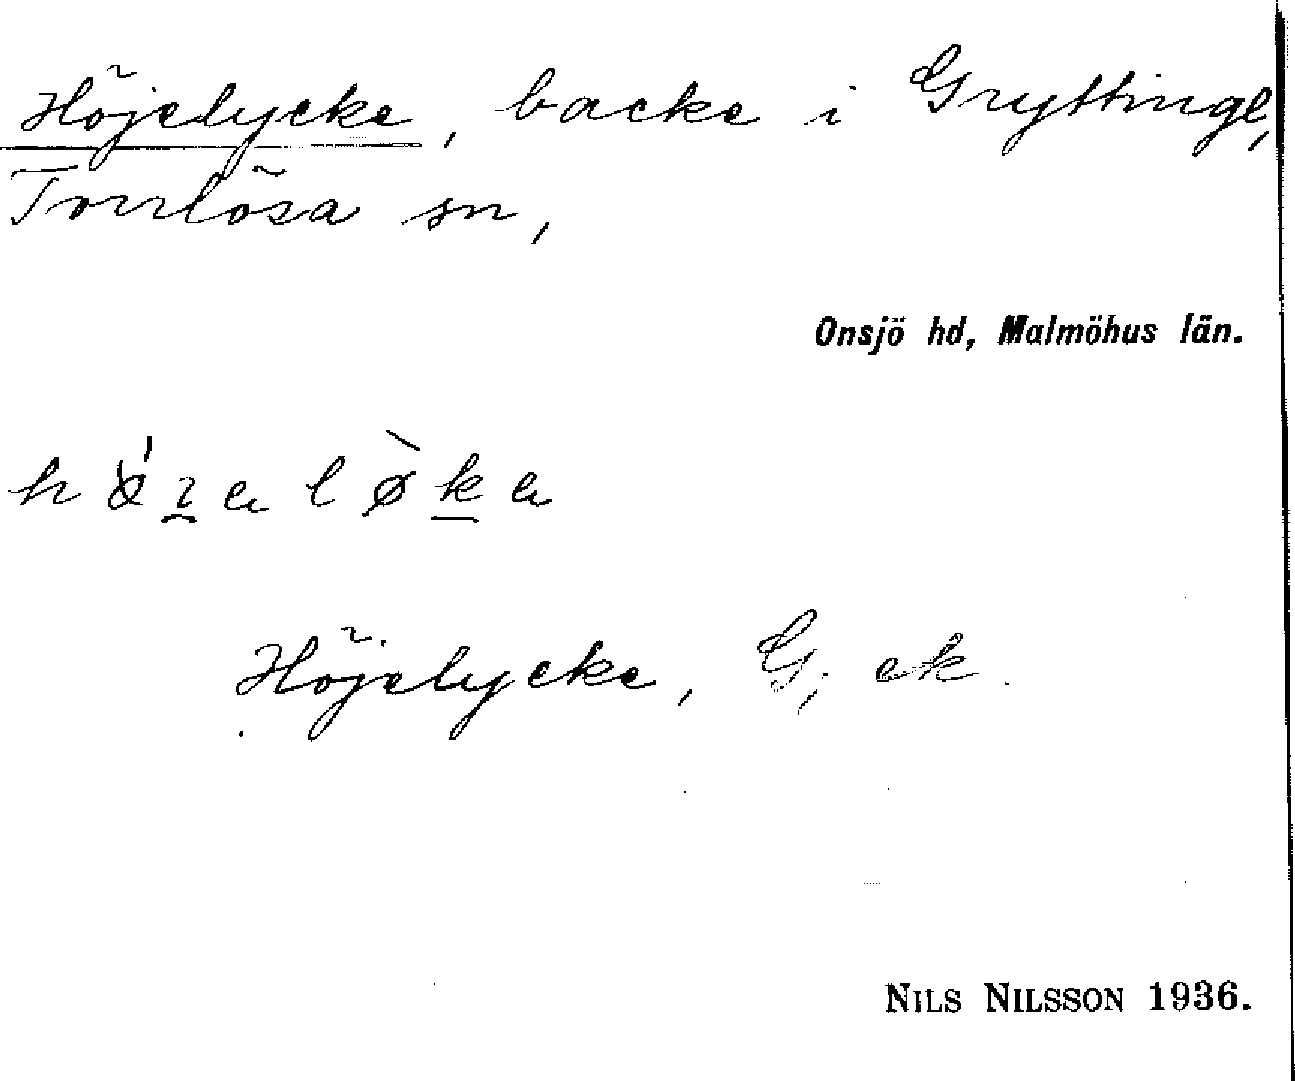 Höjelycke, backe i Gryttinge,
Torrlösa sn,
Onsjö hd, Malmöhus län.
Höjelycke, G; ek.
NILS NILSSON 1936.